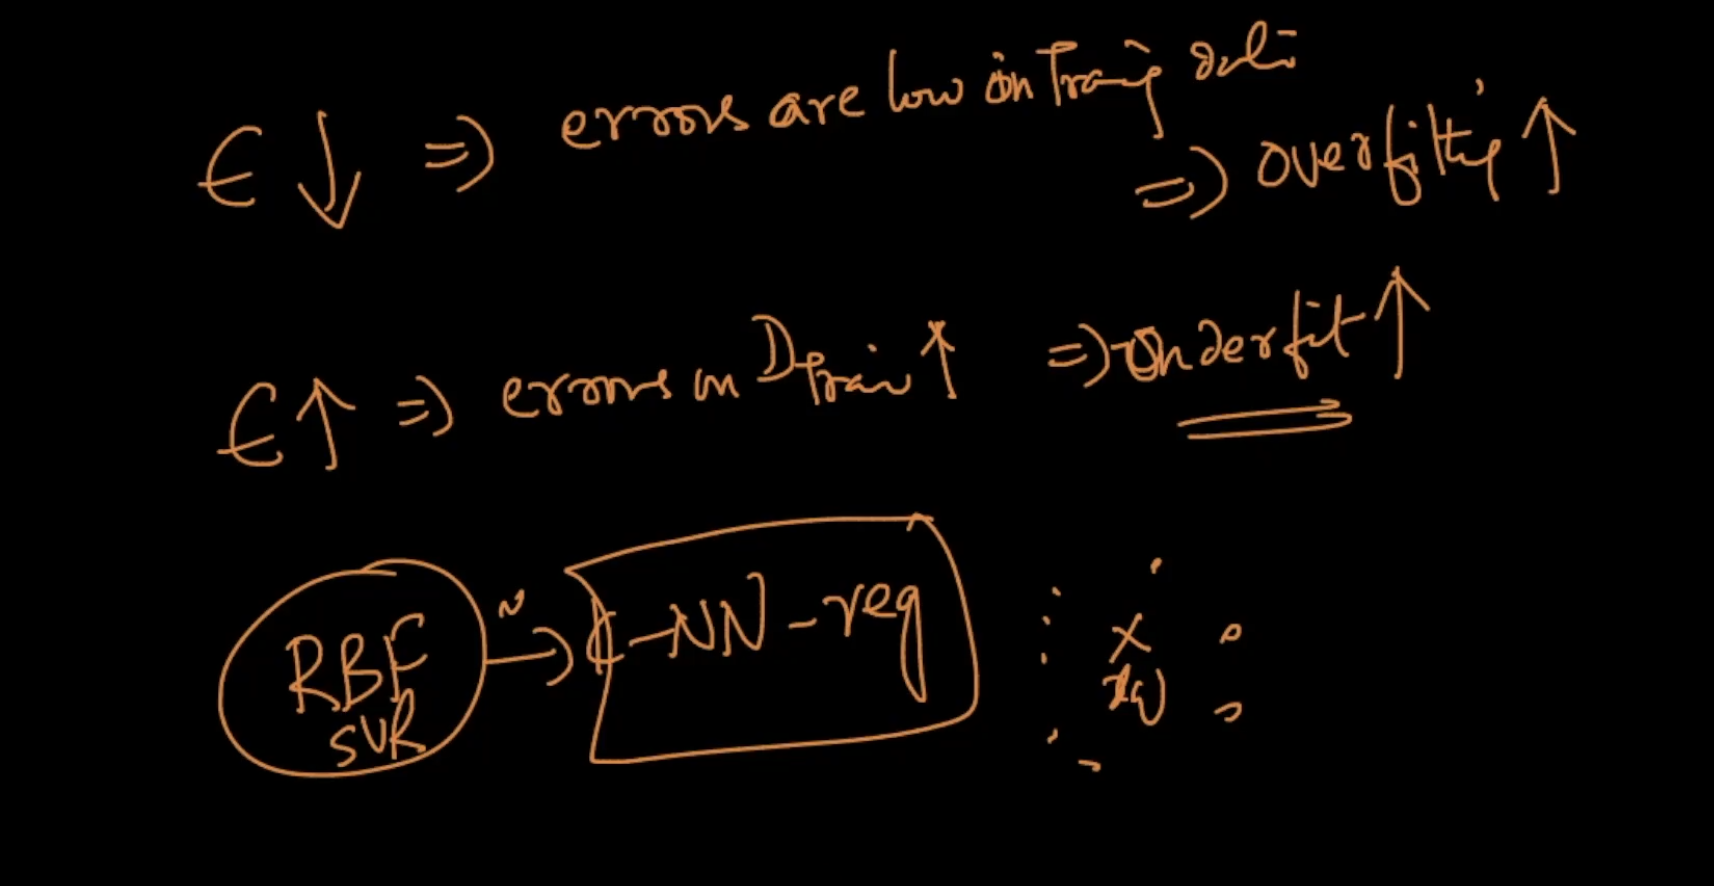 ϵ ↓ => errors are low on Traing data
=> overfitting ↑
ϵ ↑ => errors on Dtrain ↑ => underfit ↑
RBF SVR ~ → K-NN-reg
x
xq